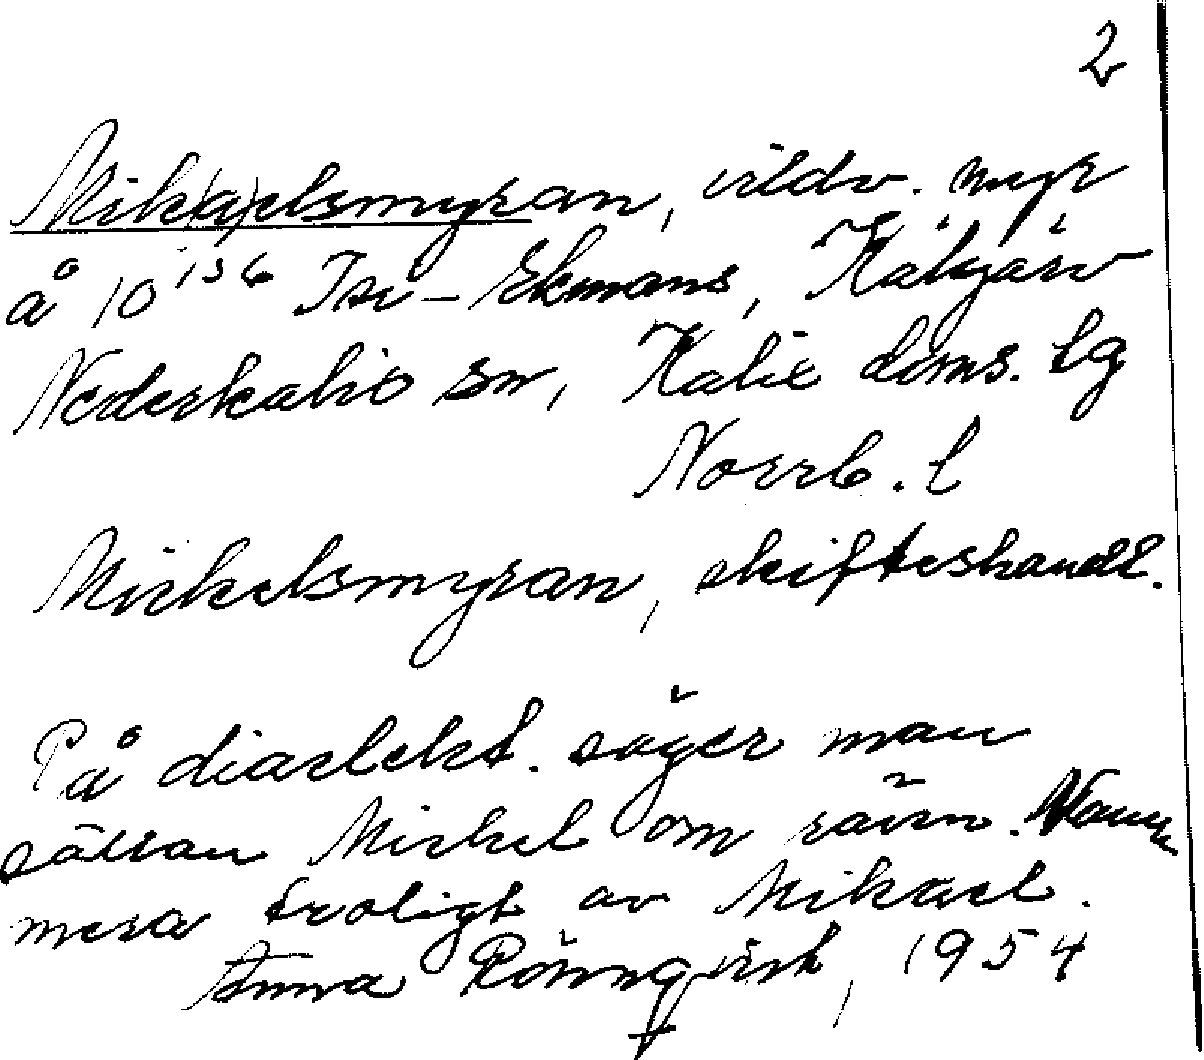 2
Mik(a)elsmyran, vildv. myr
å 10¹⁵⁶ Isr-Ekmans, Kälsjärv
Nederkalix sn, Kalix doms. lg
Norrb. l
Mickelsmyran, skifteshandl.
På diaelekt. säger man
sällan Mickel om räven. Namn
mera troligt av Mikael.
Anna Rönnqvist, 1954